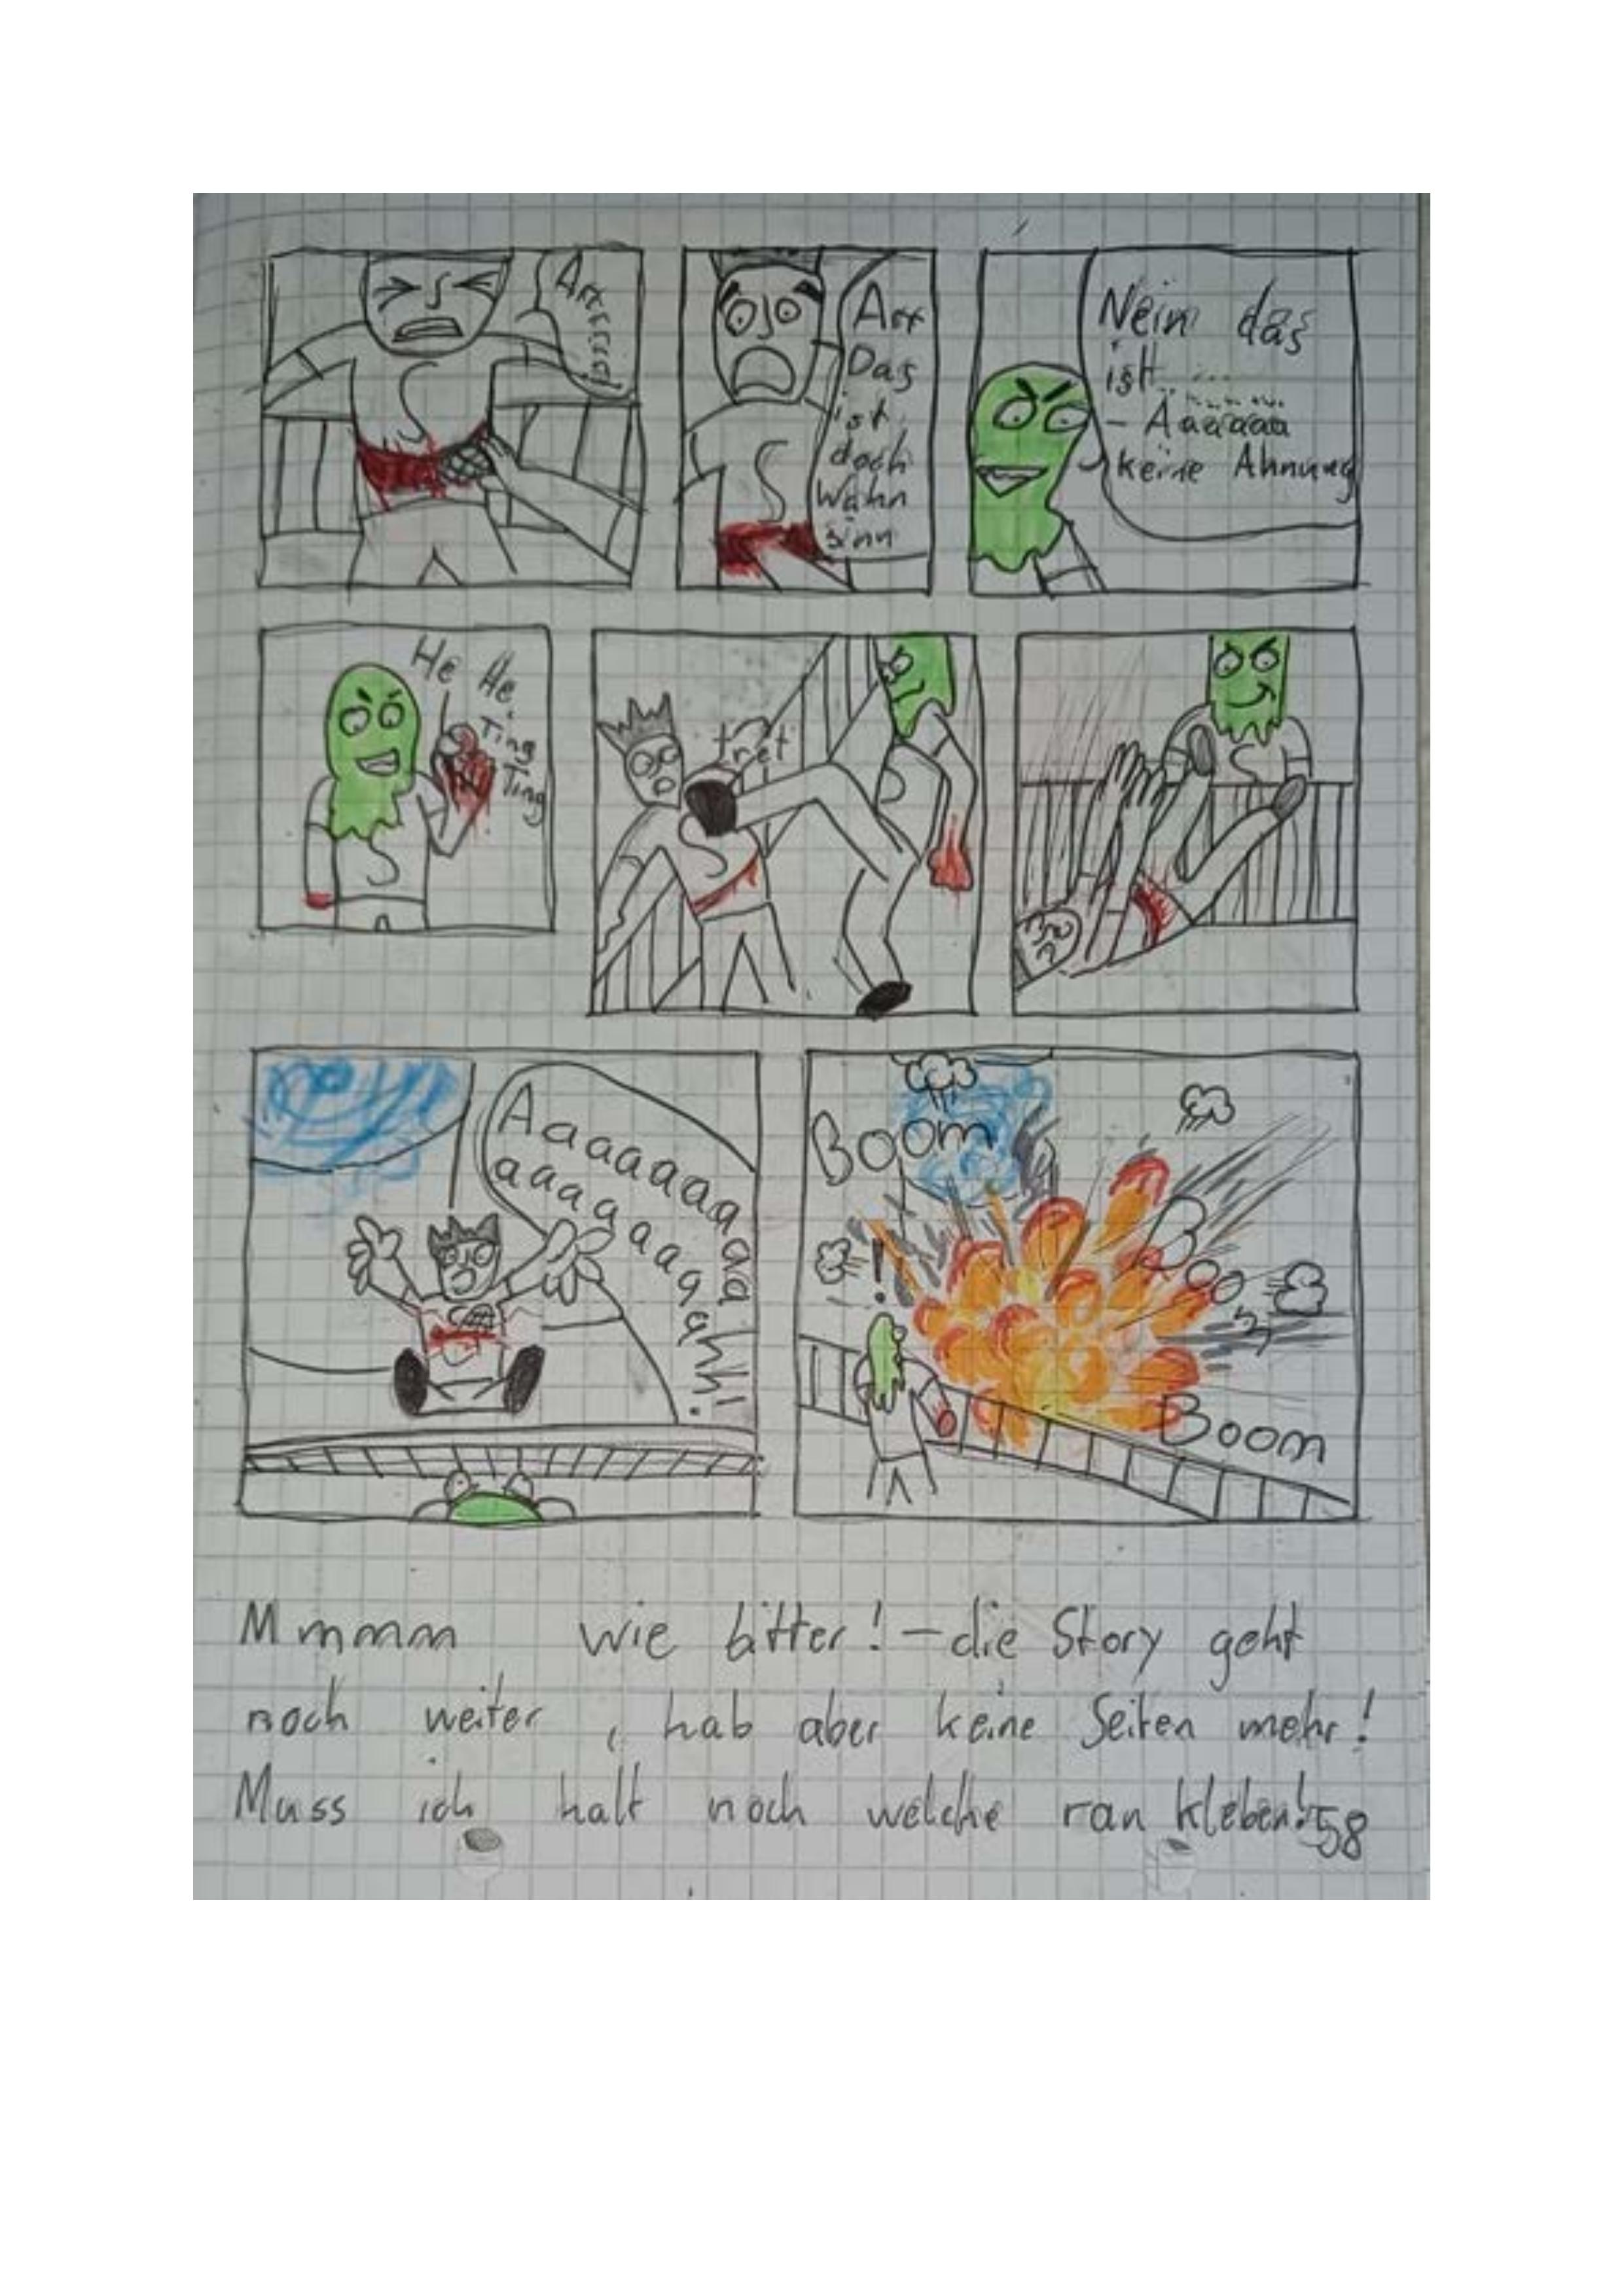 Arrrrr
Arr
Das
ist
doch
Wahn
sinn
Nein das
ist
- Äaaaaaa
keine Ahnung
He He
Ting
Ting
tret
S
S
S
S
S
S
Aaaaaaaaa
aaaaaaaaah!
Boom
!
Boom
Boom
Mmmmm wie bitter! - die Story geht
noch weiter, hab aber keine Seiten mehr!
Muss ich halt noch welche ran kleben!
58